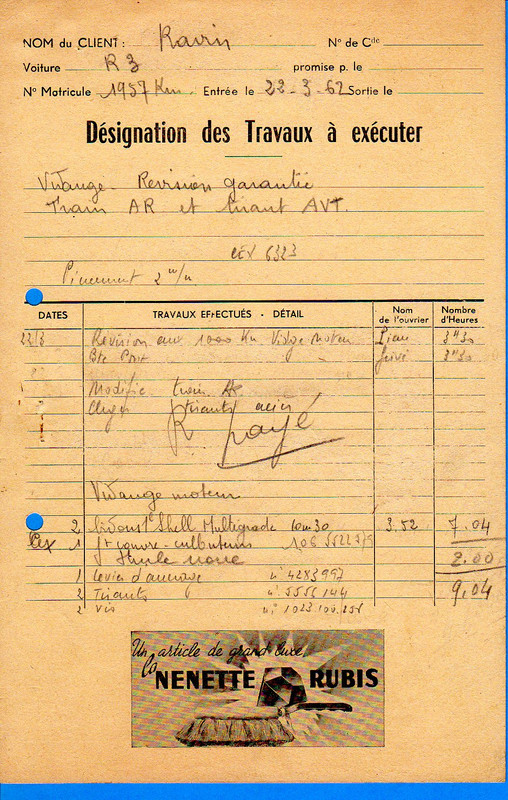 NOM du CLIENT : Ravin N° de Cde
Voiture R 3 promise p. le
N° Matricule 1957 Km Entrée le 22-3-62 Sortie le
Désignation des Travaux à exécuter
Vidange - Revision garantie
Train AR et tirant AVT.
CEX 6323
Pincement 2 m/m
DATES TRAVAUX EFFECTUÉS - DÉTAIL Nom de l'ouvrier Nombre d'Heures
22/3 Révision aux 1000 Km Vidge moteur 3H30
Bte Pont 3H30
Modifie train AR
tirants
payé
Vidange moteur
2 bidons Shell Multigrade 10w30 3.52 7.04
Cex 1 jt couvre-culbuteurs 106 5522779
2.00
1 levier d'ancrage n° 4283997
2 Tirants n° 5556144 9,04
2 vis n° 1023.100.256
Un article de grand luxe
la NENETTE RUBIS